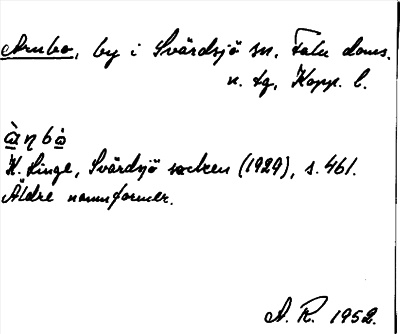 Arnbo, by i Svärdsjö sn, Falu doms.
n. tg, Kopp. l.
K. Linge, Svärdsjö socken (1929), s. 461.
Äldre namnformer.
A. R. 1952.